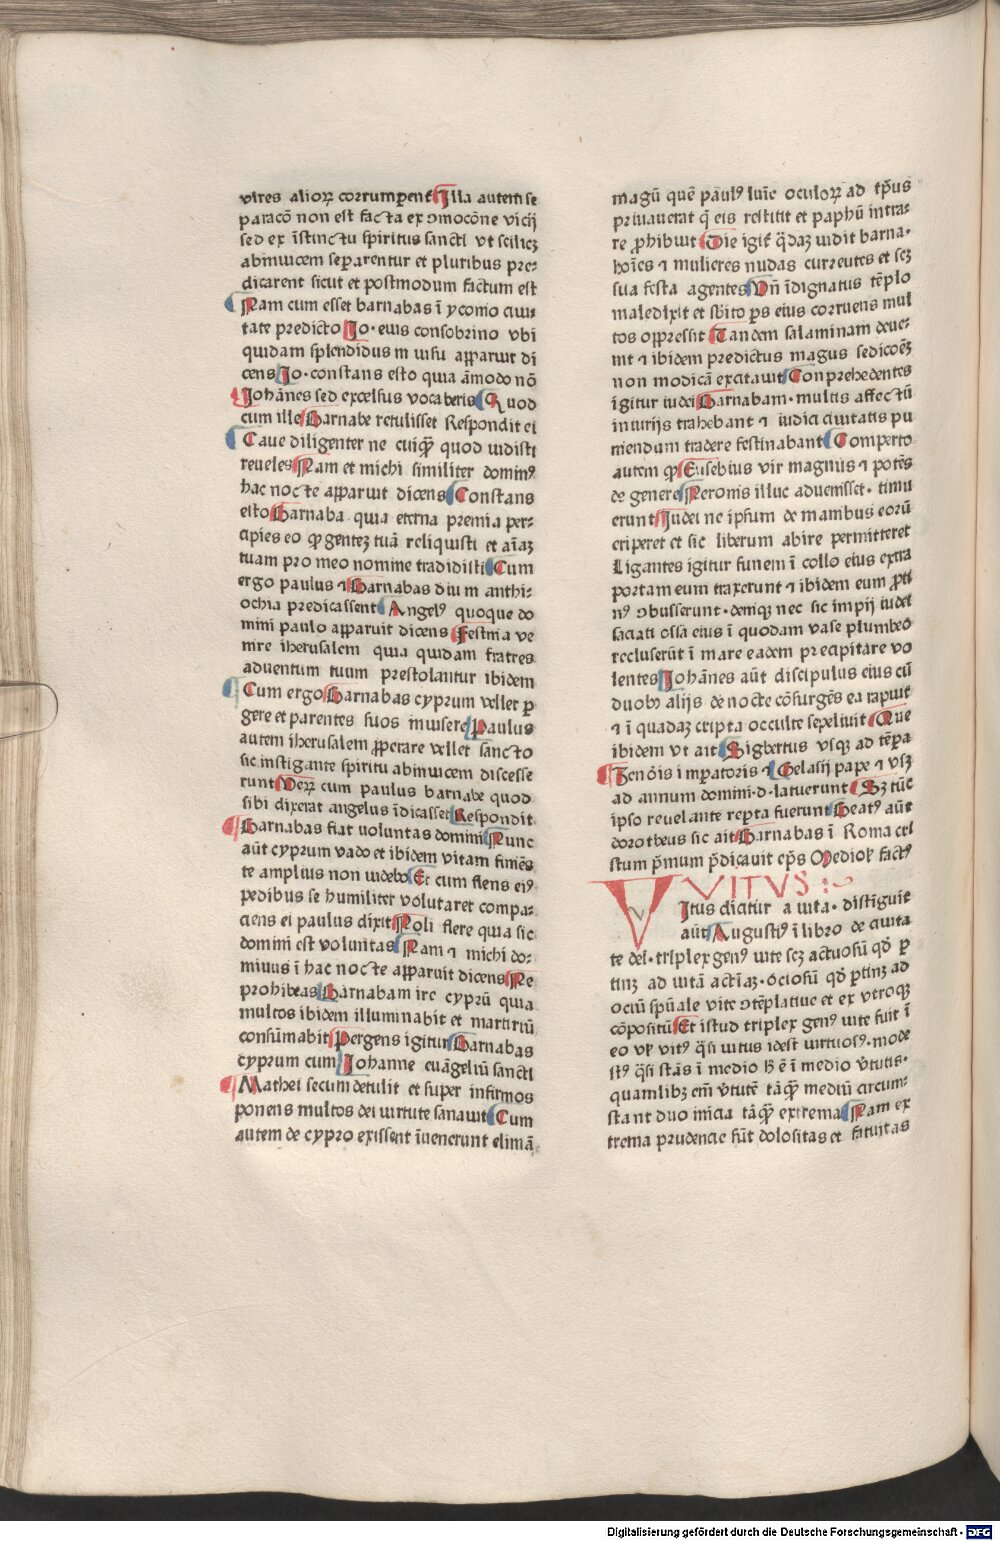 vires alioꝝ corrumpent̄ Illa autem se
paracōn non est facta ex ↄmocōne vicij
sed ex īstinctu spiritus sancti vt scilicꝫ
abinuicem seꝑarentur et pluribus pre-
dicarent sicut et postmodum factum est
Nam cum esset barnabas ī yconio ciui
tate predicto Jo· eius consobrino vbi
quidam splendidus in uisu aꝑparuit di
cens Jo· constans esto quia āmodo nō
Johānes sed excelsus vocaberis Quod
cum ille Barnabe retulisset Respondit ei
Caue diligenter ne cuiꝙ̄ quod uidisti
reueles Nam et michi similiter dominꝰ
hac nocte apparuit dicens Constans
esto Barnaba quia eterna premia per-
cipies eo ꝙ gentez tuā reliquisti et aīaz
tuam pro meo nomine tradidisti Cum
ergo paulus ⁊ Barnabas diu in anthi-
ochia predicassent Angelꝰ quoque do
mini paulo apparuit dicens Festina ve
nire iherusalem quia quidam fratres
aduentum tuum prestolantur ibidem
Cum ergo Barnabas cyprum vellet ꝑ
gere et parentes suos inuisere Paulus
autem iherusalem ꝓperare vellet sancto
sic instigante spiritu abinuicem discesse
runt Veꝝ cum paulus barnabe quod
sibi dixerat angelus īdicasset Respondit
Barnabas fiat voluntas domini Nunc
aūt cyprum vado et ibidem vitam finiēs
te amplius non uidebo Et cum flens eiꝰ
pedibus se humiliter volutaret compa-
ciens ei paulus dixit Noli flere quia sic
domini est voluntas Nam ⁊ michi do-
minus ī hac nocte apparuit dicens Ne
prohibeas Barnabam ire cyprū quia
multos ibidem illuminabit et martiriū
consūmabit Pergens igitur Barnabas
cyprum cum Johanne euāgeliū sancti
Mathei secum detulit et super infirmos
ponens multos dei uirtute sanauit Cum
autem de cypro exissent īuenerunt elimā
magū quē paulꝰ luīe oculoꝝ ad tp̄us
priuauerat q̄ eis restitit et paphū intra-
re ꝓhibuit Die igit̄ q̄daꝫ uidit barna·
hoīes ⁊ mulieres nudas currentes et seꝫ
sua festa agentes Vn̄ īdignatus tēplo
maledixit et sb̄ito ꝑs eius corruens mul
tos oppressit Tandem salaminam deue-
nit ⁊ ibidem predictus magus sedicoēꝫ
non modicā excitauit Conprehēdentes
īgitur iudei Barnabam· multis affectū
iniurijs trahebant ⁊ iudici ciuitatis pu
niendum tradere festinabant Comperto
autem ꝙ Eusebius vir magnus ⁊ potēs
de genere Neronis illuc aduenisset· timu
erunt Judei ne ip̄sum de manibus eorū
eriperet et sic liberum abire permitteret
Ligantes igitur funem ī collo eius extra
portam eum traxerunt ⁊ ibidem eum ꝓti
nꝰ ↄbusserunt· deniqꝫ nec sic impij iudei
saciati ossa eius ī quodam vase plumbeo
recluserūt ī mare eadem precipitare vo
lentes Johānes aūt discipulus eius cū
duobꝫ alijs de nocte cōsurgēs ea rapuit
⁊ ī quadaꝫ cripta occulte sepeliuit Que
ibidem vt ait Sigbertus vsqꝫ ad tēꝑa
Zenōis īmꝑatoris ⁊ Gelasij pape ⁊ vsꝫ
ad annum domini·d· latuerunt Sꝫ tūc
ipso reuelante reꝑta fuerunt Beatꝰ aūt
dorotheus sic ait Barnabas ī Roma cri
stum p̄mum p̄dicauit ep̄s Mediol̄ factꝰ
VITVS
Vitus dicitur a uita· distiguit
aūt Augustiꝰ ī libro de ciuita
te dei· triplex genꝰ uite scꝫ actuosū qd̄ ꝑ
tinꝫ ad uitā actīaꝫ· ociosū qd̄ ꝑtinꝫ ad
ociū sp̄uale vite ↄtēplatiue et ex vtroqꝫ
cōpositū Et istud triplex genꝰ uite fuit ī
eo vl̄ vitꝰ q̄si uitus idest uirtuosꝰ· mode
stꝰ q̄si stās ī medio h̄ ē ī medio v̄tutis·
quamlibꝫ em̄ v̄tutē tāqꝫ̄ mediū circum-
stant duo inicia tāqꝫ̄ extrema Nam ex
trema prudencie sūt dolositas et fatuitas
Digitalisierung gefördert durch die Deutsche Forschungsgemeinschaft - DFG